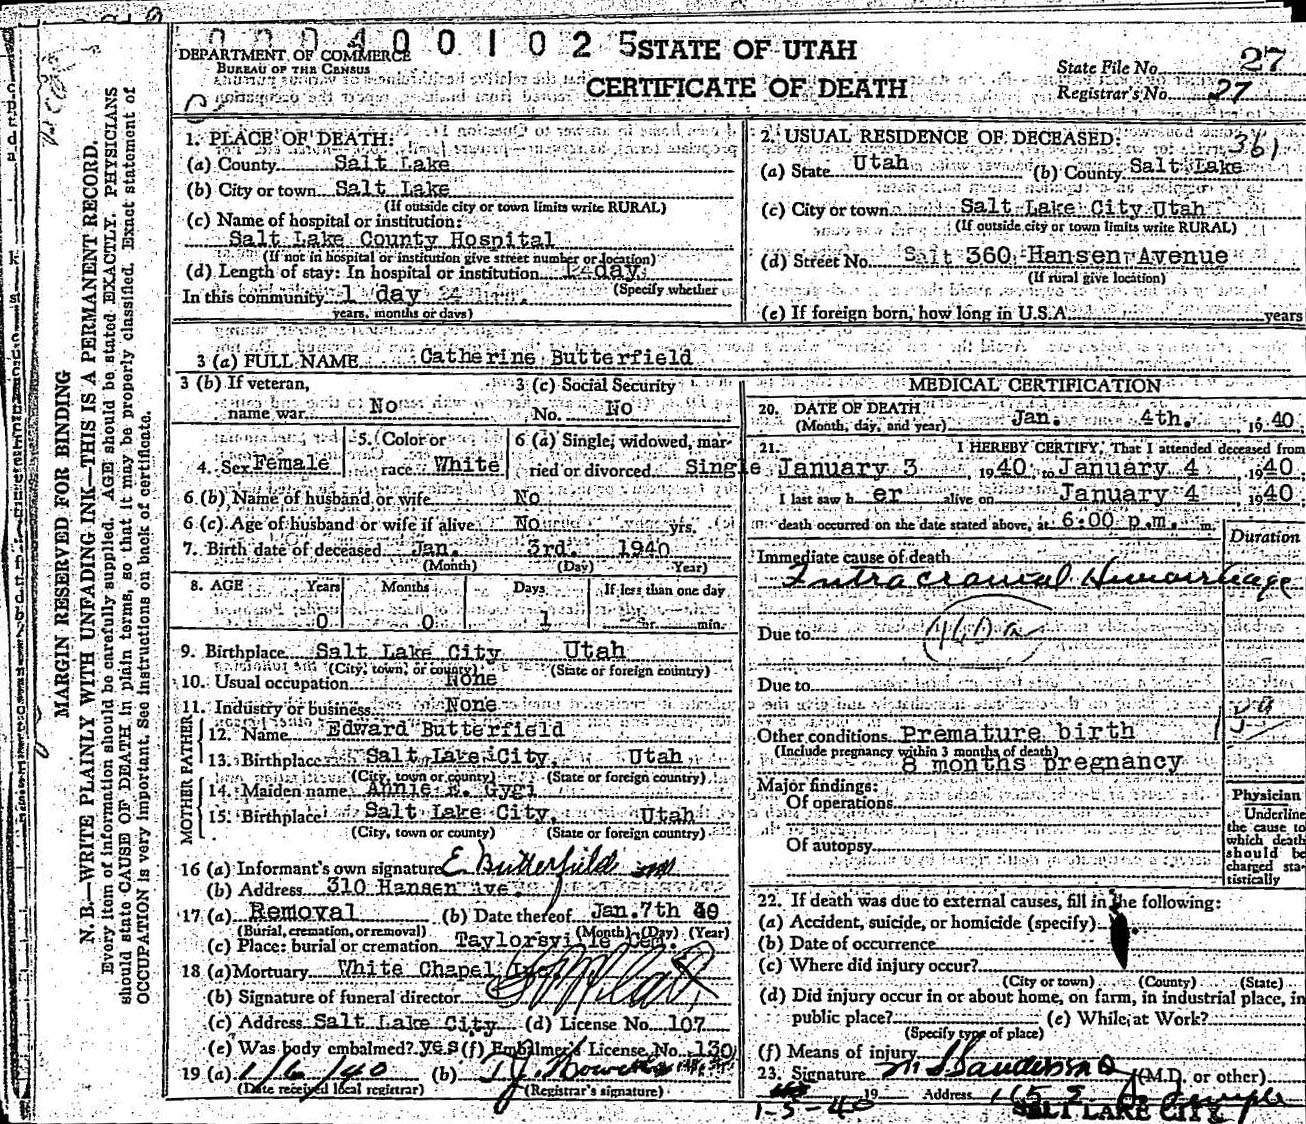 0 0 0 4 0 0 1 0 2 5
STATE OF UTAH
CERTIFICATE OF DEATH
DEPARTMENT OF COMMERCE
BUREAU OF THE CENSUS
State File No. 27
Registrar's No. 27
361
MARGIN RESERVED FOR BINDING
N. B.—WRITE PLAINLY WITH UNFADING INK—THIS IS A PERMANENT RECORD.
Every item of information should be carefully supplied. AGE should be stated EXACTLY. PHYSICIANS
should state CAUSE OF DEATH in plain terms, so that it may be properly classified. Exact statement of
OCCUPATION is very important. See instructions on back of certificate.
1. PLACE OF DEATH:
(a) County Salt Lake
(b) City or town Salt Lake
(If outside city or town limits write RURAL)
(c) Name of hospital or institution:
Salt Lake County Hospital
(If not in hospital or institution give street number or location)
(d) Length of stay: In hospital or institution day
(Specify whether
In this community 1 day
years, months or days)
2. USUAL RESIDENCE OF DECEASED:
(a) State Utah (b) County Salt Lake
(c) City or town Salt Lake City Utah
(If outside city or town limits write RURAL)
(d) Street No. Salt 360 Hansen Avenue
(If rural give location)
(e) If foreign born, how long in U.S.A. years
3 (a) FULL NAME Catherine Butterfield
3 (b) If veteran,
name war No
3 (c) Social Security
No. No
4. Sex Female
5. Color or
race White
6 (a) Single, widowed, mar-
ried or divorced Single
6 (b) Name of husband or wife No
6 (c) Age of husband or wife if alive No yrs.
7. Birth date of deceased Jan. 3rd. 1940
(Month) (Day) Year)
8. AGE Years Months Days If less than one day
0 0 1 hr. min.
9. Birthplace Salt Lake City Utah
(City, town, or county) (State or foreign country)
10. Usual occupation None
11. Industry or business None
FATHER
12. Name Edward Butterfield
13. Birthplace Salt Lake City, Utah
(City, town or county) (State or foreign country)
MOTHER
14. Maiden name Annie E. Gygi
15. Birthplace Salt Lake City, Utah
(City, town or county) (State or foreign country)
16 (a) Informant's own signature E Butterfield
(b) Address 310 Hansen Ave
17 (a) Removal (b) Date thereof Jan. 7th 40
(Burial, cremation, or removal) (Month) (Day) (Year)
(c) Place: burial or cremation Taylorsville Cem.
18 (a) Mortuary White Chapel Inc.
(b) Signature of funeral director
(c) Address Salt Lake City (d) License No. 107
(e) Was body embalmed? yes (f) Embalmer's License No. 130
19 (a) 1/6/40 (b)
(Date received local registrar) (Registrar's signature)
MEDICAL CERTIFICATION
20. DATE OF DEATH
(Month, day, and year) Jan. 4th. 19 40
21. I HEREBY CERTIFY, That I attended deceased from
January 3 19 40, to January 4 19 40
I last saw h er alive on January 4 19 40
death occurred on the date stated above, at 6:00 p.m. m.
Duration
Immediate cause of death
Intracranial Hemorrhage
Due to
Due to
Other conditions Premature birth
(Include pregnancy within 3 months of death)
8 months pregnancy
Major findings:
Of operations
Of autopsy
Physician
Underline
the cause to
which death
should be
charged sta-
tistically
22. If death was due to external causes, fill in the following:
(a) Accident, suicide, or homicide (specify)
(b) Date of occurrence
(c) Where did injury occur?
(City or town) (County) (State)
(d) Did injury occur in or about home, on farm, in industrial place, in
public place? (e) While at Work?
(Specify type of place)
(f) Means of injury
23. Signature (M.D. or other)
1-5-40 19 Address
SALT LAKE CITY